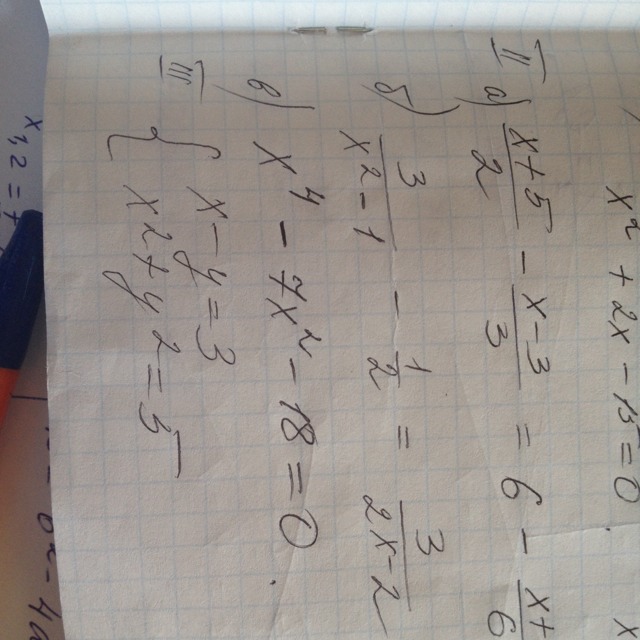 x² + 2x - 15 = 0
II
а) (x+5)/2 - (x-3)/3 = 6 - (x+)/6
б) 3/(x²-1) - 1/2 = 3/(2x-2)
в) x⁴ - 7x² - 18 = 0
III
{ x - y = 3
x² + y² = 5